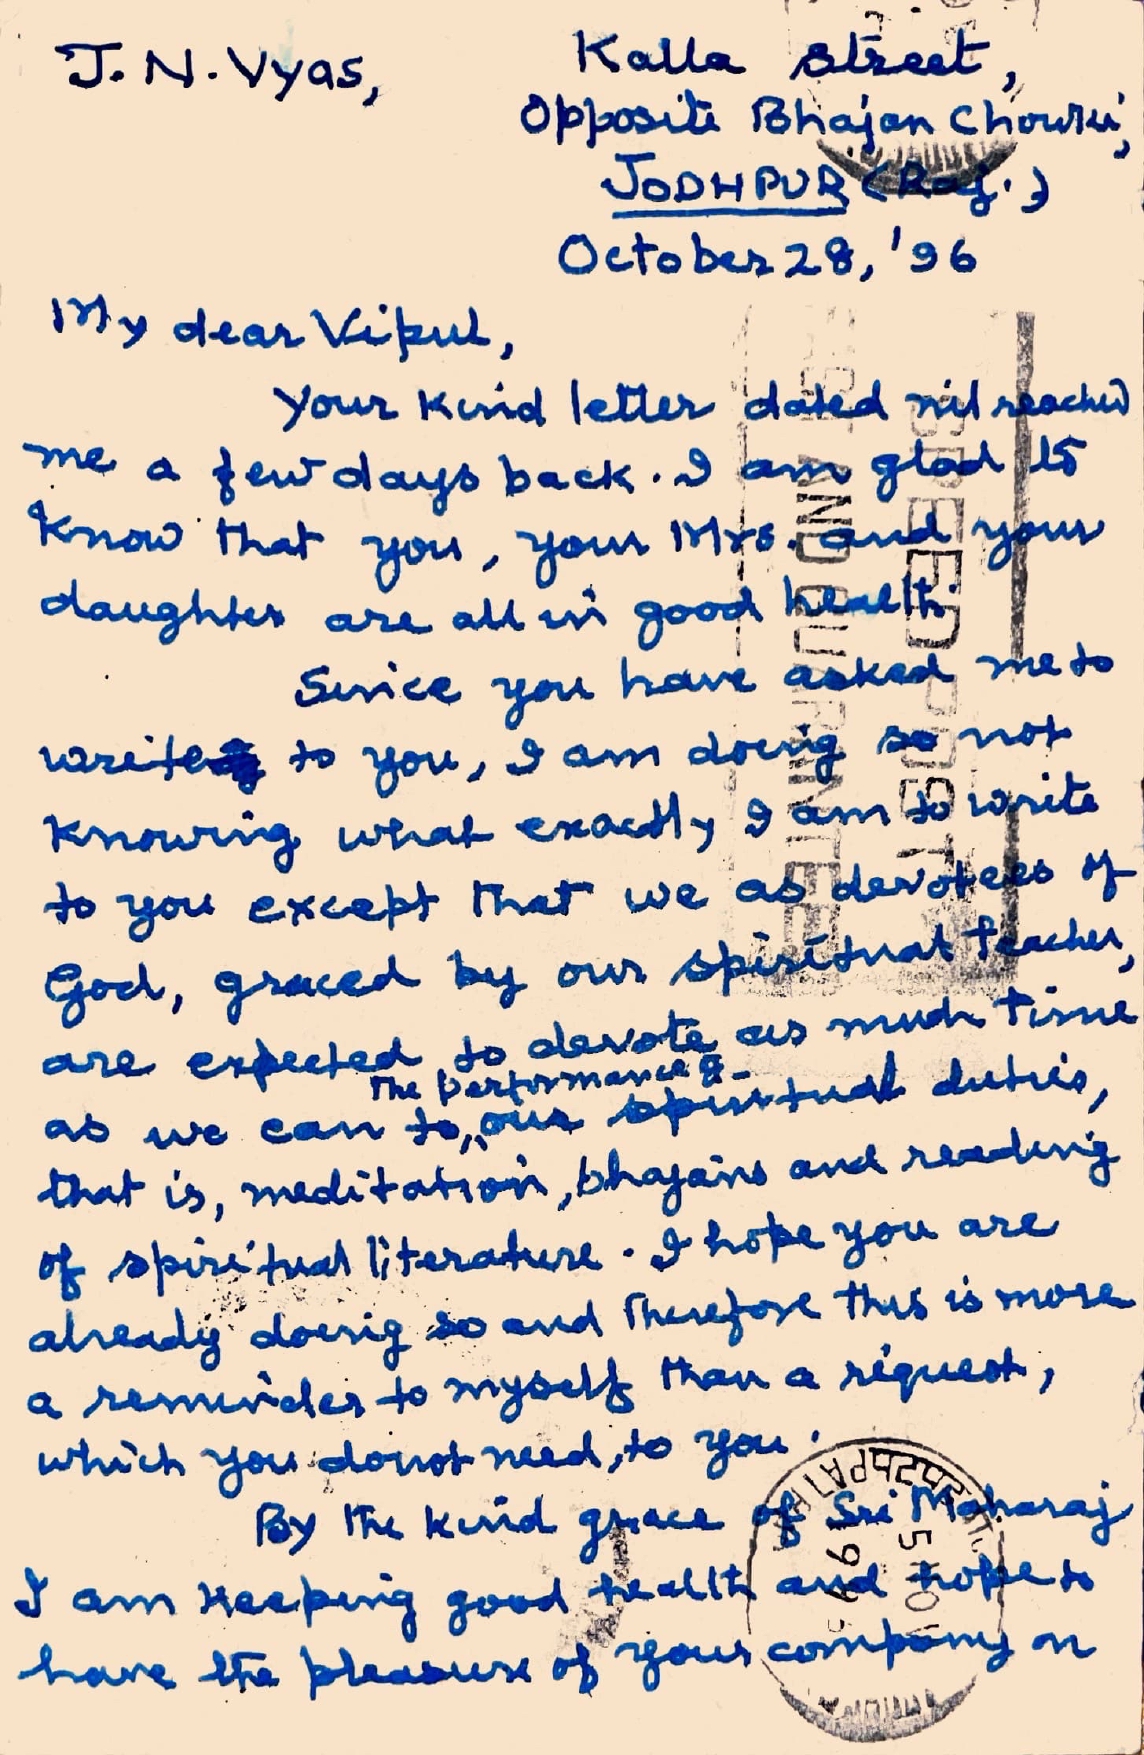 J. N. Vyas,
Kalla Street,
Opposite Bhajan Chowki,
JODHPUR (Raj.)
October 28, '96
My dear Vipul,
Your kind letter dated nil reached
me a few days back. I am glad to
know that you, your Mrs. and your
daughter are all in good health.
Since you have asked me to
write to you, I am doing so not
knowing what exactly I am to write
to you except that we as devotees of
God, graced by our spiritual teacher,
are expected to devote as much time
as we can to the performance of our spiritual duties,
that is, meditation, bhajans and reading
of spiritual literature. I hope you are
already doing so and therefore this is more
a reminder to myself than a request,
which you do not need, to you.
By the kind grace of Sri Maharaj
I am keeping good health and hope to
have the pleasure of your company on
SPEED POST
AND GUARANTEE